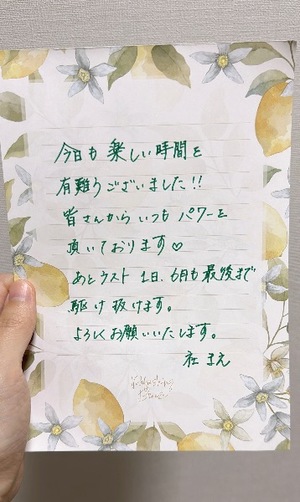 今日も楽しい時間を
有難うございました!!
皆さんからいつもパワーを
頂いております♡
あとラスト1日、6月も最後まで
駆け抜けます。
よろしくお願いいたします。